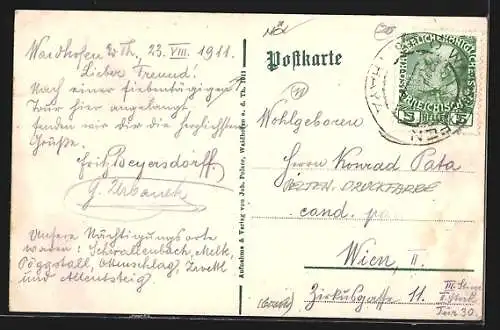 Waidhofen a/Th., 23. VIII. 1911.
Lieber Freund!
Nach einer siebentägigen
Tour hier angelangt
senden wir dir die herzlichsten
Grüße.
Fritz Beyersdorff
G. Urbanek
Unsere Nächtigungsorte
waren: Schwallenbach, Melk,
Pöggstall, Ottenschlag, Zwettl
und Allentsteig
Aufnahme & Verlag von Joh. Polzer, Waidhofen a. d. Th. 1911
Postkarte
Wohlgeboren
Herrn Konrad Pata
SELTEN. DRUCKFARBE
cand.
Wien, II.
Zirkusgasse 11.
III. Stiege
II. Stock
Tür 30.
5 5